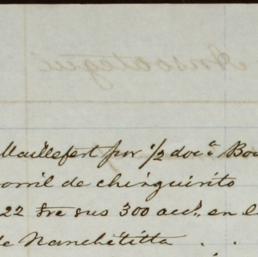 Maillefert por 1/2 doc.a Bo
barril de chinguirito
22 Fre sus 300 acc.s en l
de Nanchititla . .